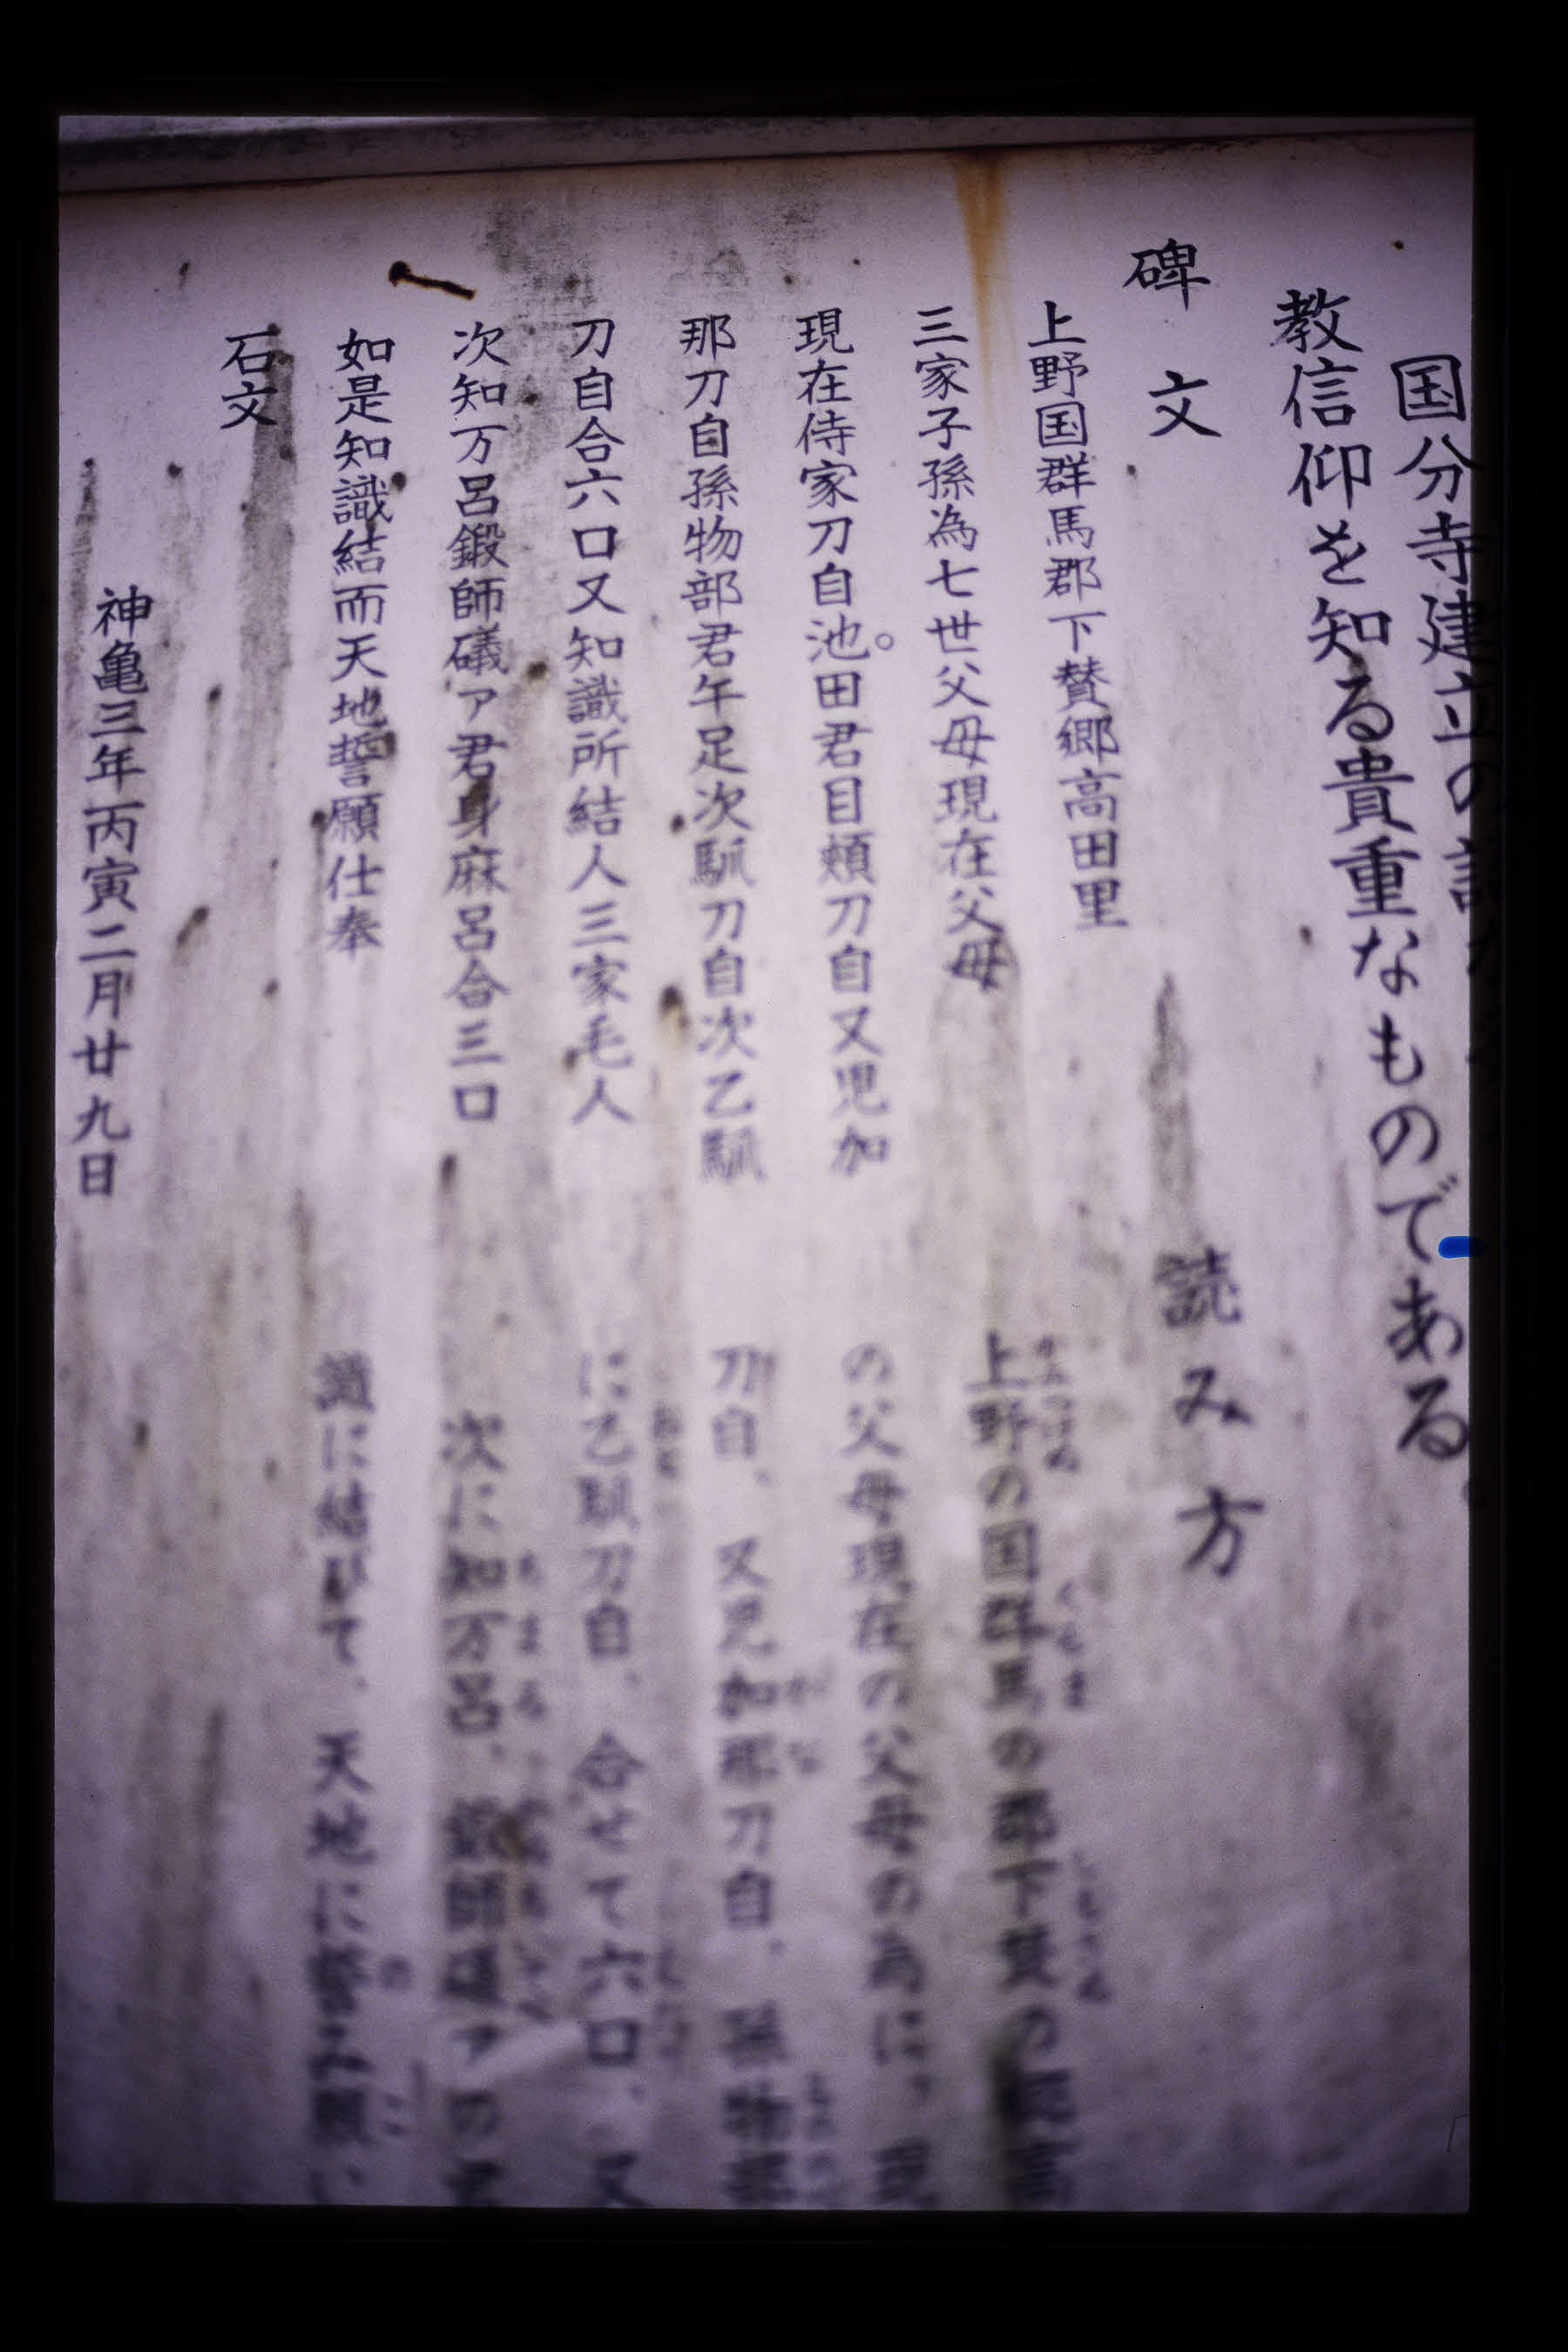 国分寺建立の
教信仰を知る貴重なものである。
碑文
上野国群馬郡下賛郷高田里
三家子孫為七世父母現在父母
現在侍家刀自池田君目頬刀自又児加
那刀自孫物部君午足次馴刀自次乙馴
刀自合六口又知識所結人三家毛人
次知万呂鍛師礒ア君身麻呂合三口
如是知識結而天地誓願仕奉
石文
神亀三年丙寅二月廿九日
読み方
上野の国群馬の郡下賛の郷高
の父母現在の父母の為に、現
刀自、又児加那刀自、孫物部
に乙馴刀自、合せて六口、又
次に知万呂、鍛師礒アの君
識に結びて、天地に誓い願い